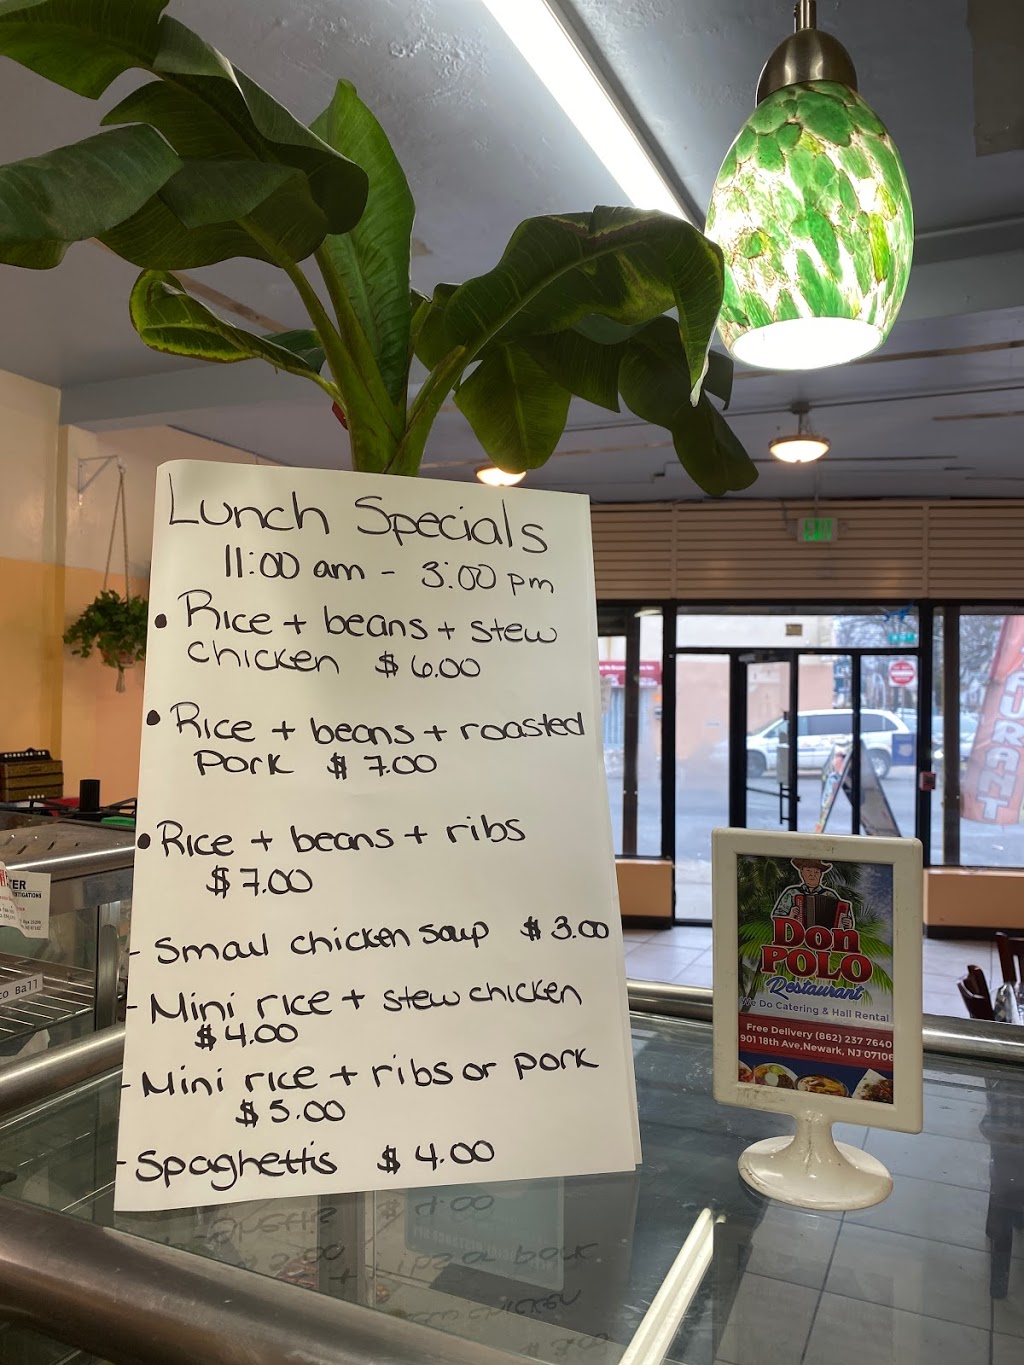 Lunch Specials
11:00 am - 3:00 pm
• Rice + beans + stew
chicken $6.00
• Rice + beans + roasted
pork $7.00
• Rice + beans + ribs
$7.00
- Small chicken soup $3.00
- Mini rice + stew chicken
$4.00
- Mini rice + ribs or pork
$5.00
- Spaghettis $4.00
EXIT
Don
POLO
Restaurant
We Do Catering & Hall Rental
Free Delivery (862) 237 7640
901 18th Ave, Newark, NJ 07106
URANT
Ball
TER